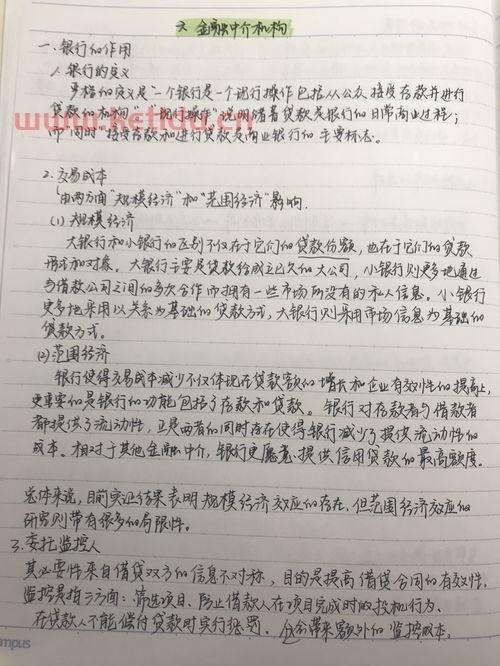 六 金融中介机构
一.银行的作用
1.银行的定义
严格的定义是"一个银行是一个现行操作包括从公众接受存款并进行
贷款的机构" "现行操作"说明储蓄贷款是银行的日常商业过程;
"同时"接受存款和进行贷款是商业银行的主要标志。
www.ketidu.cn
2.交易成本
由两方面"规模经济"和"范围经济"影响.
(1)规模经济
大银行和小银行的区别不仅在于它们的贷款份额,也在于它们的贷款
形式和对象。大银行主要是贷款给成立已久的大公司,小银行则更多地通过
与借款公司之间的多次合作而拥有一些市场所没有的私人信息。小银行
更多地采用以关系为基础的贷款方式,大银行则采用市场信息为基础的
贷款方式。
(2)范围经济
银行使得交易成本减少不仅体现在贷款额的增长和企业有效性的提高上,
更重要的是银行的功能包括了存款和贷款。银行对存款者与借款者
都提供了流动性,正是两者的同时存在使得银行减少了提供流动性的
成本。相对于其他金融中介,银行更愿意提供信用贷款的最高额度.
总体来说,目前实证结果表明规模经济效应的存在,但范围经济效应的
研究则带有很多的局限性。
3.委托监控人
其必要性来自借贷双方的信息不对称,目的是提高借贷合同的有效性,
监控是指三方面:筛选项目、防止借款人在项目完成时的投机行为、
在贷款人不能偿付贷款时实行惩罚。 会带来额外的监控成本.
mpus